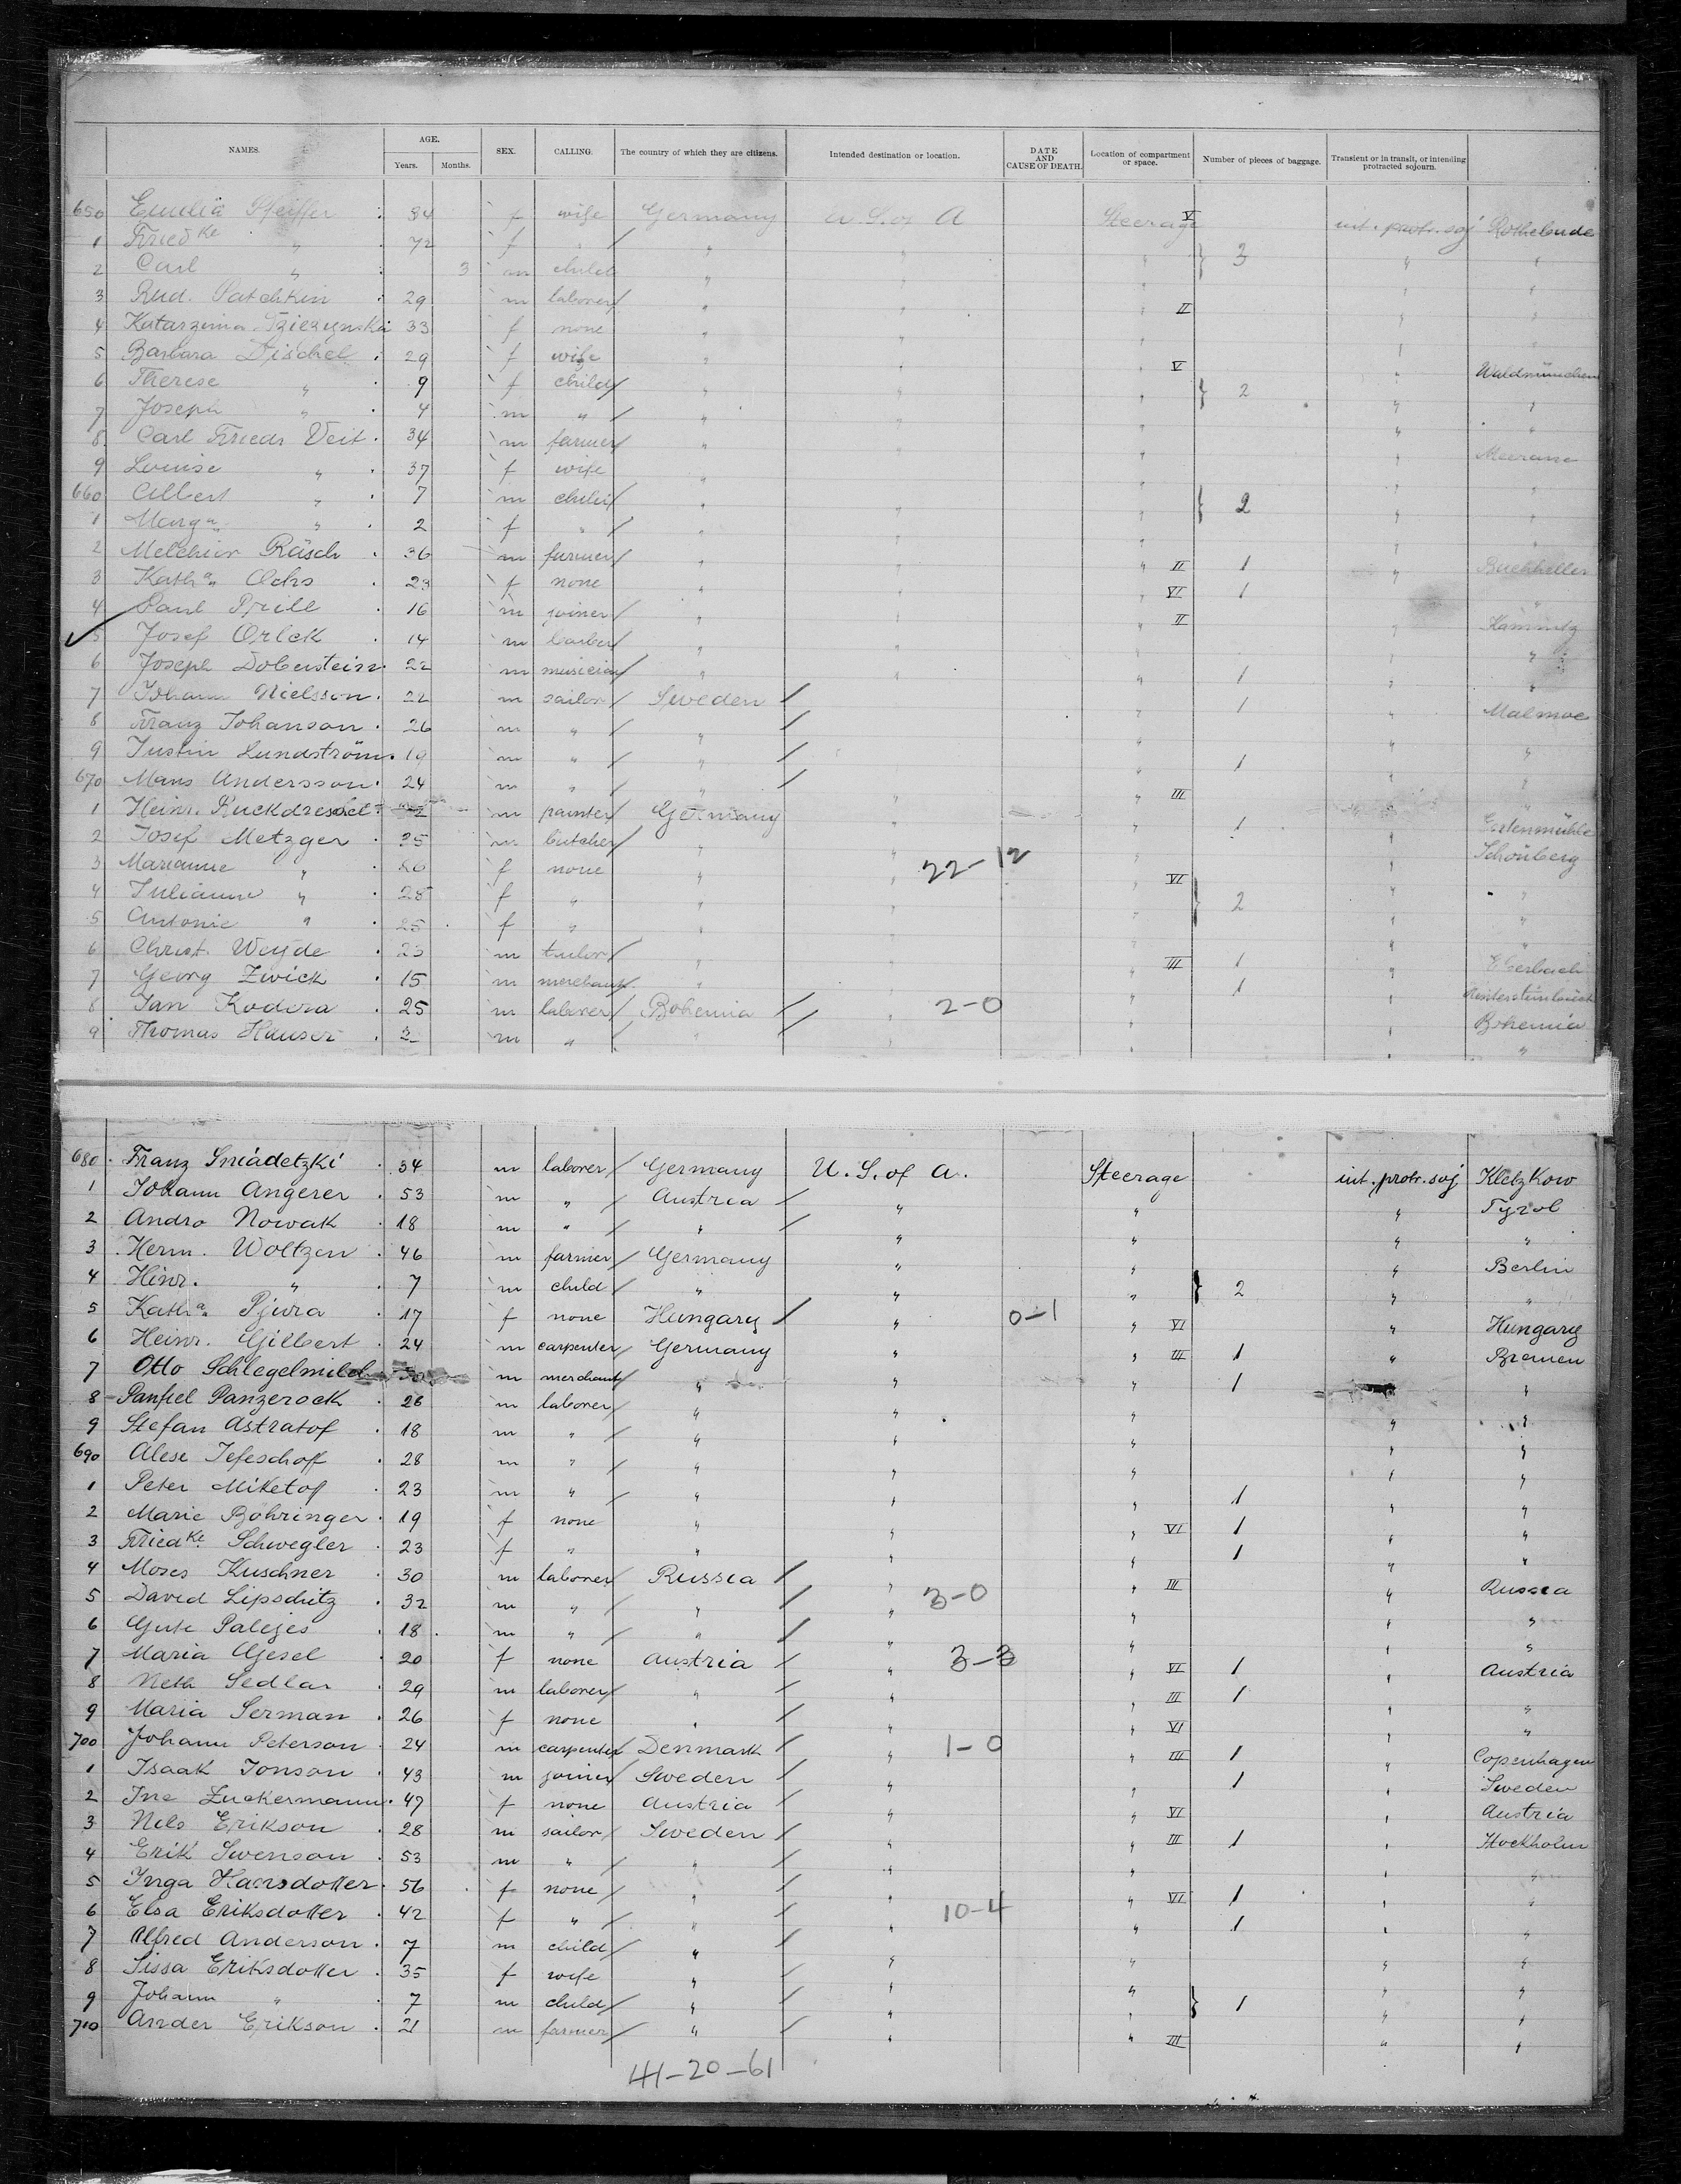 NAMES. AGE. Years. Months. SEX. CALLING. The country of which they are citizens. Intended destination or location. DATE AND CAUSE OF DEATH. Location of compartment or space. Number of pieces of baggage. Transient or in transit, or intending protracted sojourn.
650 Emilia Pfeiffer 34 f wife Germany U. S. of A Steerage V int. protr. soj Rothebude
1 Friedke " 72 f " " " " 3 " "
2 Carl " 3 m child " " " " "
3 Rud. Patchkin 29 m laborer " " " II " "
4 Katarzina 33 f none " " " "
5 Barbara Dischel 29 f wife " " " V " Waldmünchen
6 Therese " 9 f child " " " 2 " "
7 Joseph " 4 m " " " " " "
8 Carl Friedr Veit 34 m farmer " " " " Meerane
9 Louise " 37 f wife " " " " "
660 Albert " 7 m child " " " 2 " "
1 Marga " 2 f " " " " " "
2 Melchior Räsch 36 m farmer " " " II 1 "
3 Katha Ochs 23 f none " " " VI 1 "
4 Paul Prill 16 m joiner " " " II "
5 Josef Orlek 14 m barber " " " "
6 Joseph Doberstein 22 m musician " " " 1 " "
7 Johann Nielsson 22 m sailor Sweden " 1 " Malmoe
8 Franz Johanson 26 m " " " " "
9 Justin Lundström 19 m " " " 1 " "
670 Mans Andersson 24 m " " " " III "
1 Heinr. Ruckdreschel m painter Germany " " 1 "
2 Josef Metzger 35 m butcher " " " " Schönberg
3 Marianne " 26 f none " " 22-12 " VI " "
4 Julianne " 28 f " " " 2 " "
5 Antonie " 25 f " " " " "
6 Christ. Weyde 23 m " " " III 1 " Eberbach
7 Georg Zwick 15 m merchant " " " 1 "
8 Jan Kodera 25 m laborer Bohemia " 2-0 " " Bohemia
9 Thomas Hauser m " " " " " "
680 Franz Sniadetzki 34 m laborer Germany U. S. of A. Steerage int. protr. soj Kletzkow
1 Johann Angerer 53 m " Austria " " " Tyrol
2 Andro Nowak 18 m " " " " " "
3 Herm. Woltzen 46 m farmer Germany " " " Berlin
4 Hinr. " 7 m child " " " 2 " "
5 Katha Pjura 17 f none Hungary " 0-1 " VI " Hungary
6 Heinr. Gilbert 24 m carpenter Germany " " III 1 " Bremen
7 Otto Schlegelmilch m merchant " " " 1 "
8 Panfiel Panzerock 26 m laborer " " " " "
9 Stefan Astratof 18 m " " " " " "
690 Alese Jefeschoff 28 m " " " " " "
1 Peter Miketof 23 m " " " " 1 " "
2 Marie Böhringer 19 f none " " " VI 1 " "
3 Friedke Schwegler 23 f " " " " 1 " "
4 Moses Kuschner 30 m laborer Russia " " III " Russia
5 David Lipschitz 32 m " " " 3-0 " " "
6 Gute Palejes 18 m " " " " " "
7 Maria Gjesel 20 f none Austria " 3-3 " VI 1 " Austria
8 Meth Sedlar 29 m laborer " " " III 1 " "
9 Maria Serman 26 f none " " " VI " "
700 Johann Peterson 24 m carpenter Denmark " 1-0 " III 1 " Copenhagen
1 Isaak Jonson 43 m joiner Sweden " " 1 " Sweden
2 Ine Zuckermann 47 f none Austria " " VI " Austria
3 Nels Erikson 28 m sailor Sweden " " III 1 " Stockholm
4 Erik Swenson 53 m " " " " " "
5 Inga Hansdotter 56 f none " " " VI 1 " "
6 Elsa Eriksdotter 42 f " " " 10-4 " 1 " "
7 Alfred Anderson 7 m child " " " " "
8 Sissa Eriksdotter 35 f wife " " " " "
9 Johann " 7 m child " " " 1 " "
710 Ander Erikson 21 m farmer " " " III " "
41-20-61